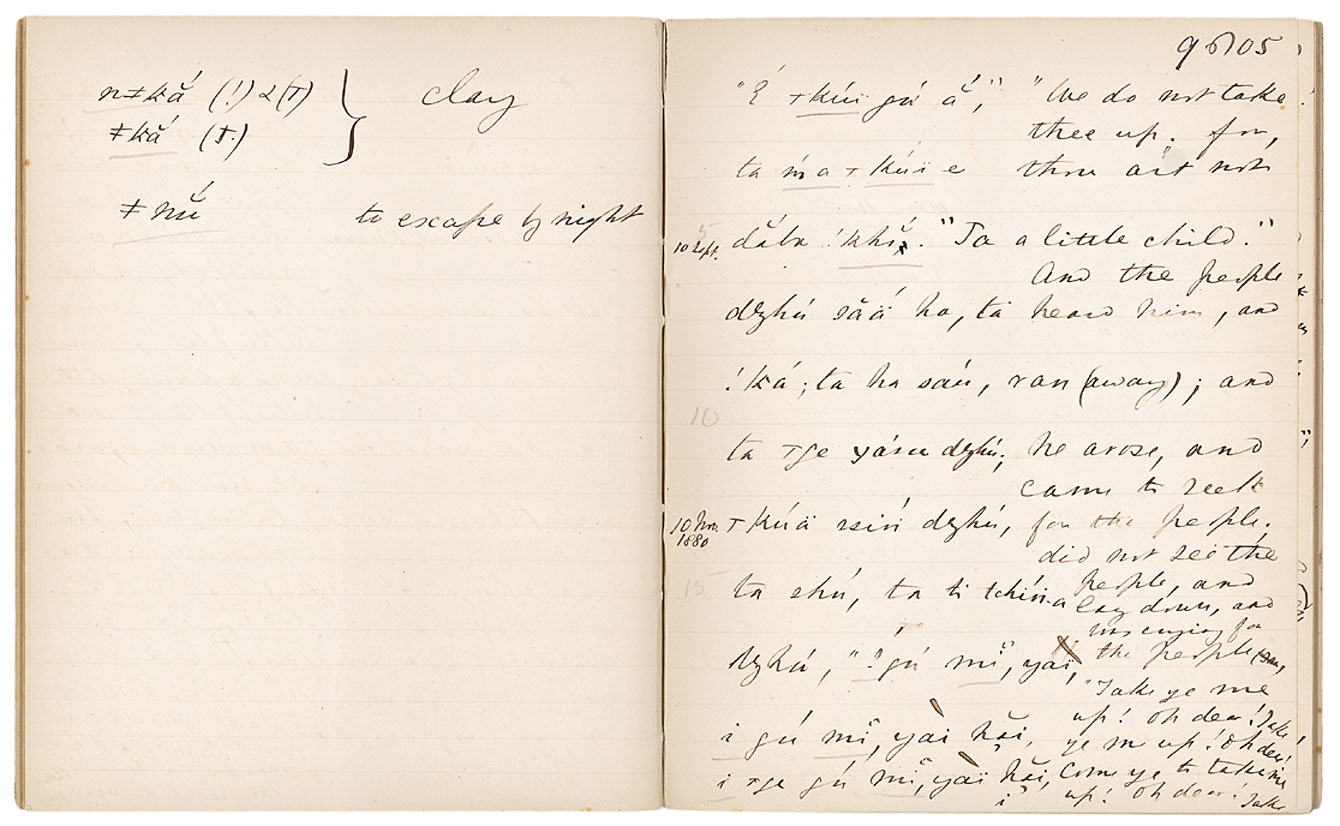 n ǂ kắ (!) & (T) } clay
ǂ kắ (T.)
ǂ nǘ to escape by night
9605
"É ┬ kúï gú ă", "We do not take
thee up. for,
ta ḿ a ┬ kúï e thou art not
5
10 Sept. dăba !khī̆. "Ta a little child."
And the people
dzhú săä́ ha, ta heard him, and
!ká; ta ha sáu, ran (away); and
10
ta ┬ge yáru dzhú; he arose, and
came to seek
10 Nov. 1880 ┬ kúä dzhú, for the people.
did not see the
15
ta shú, ta ti tchíṅ a people, and
lay down, and
was crying for
dzhú, "!gú mĭ́, yaï, the people
"Take ye me
up! oh dear! Take
i gú mĭ́, yaì hắi, ye me up! oh dear!
i ┬ge gú mĭ́, yaì hắi, come ye to take me
i up! oh dear! Take